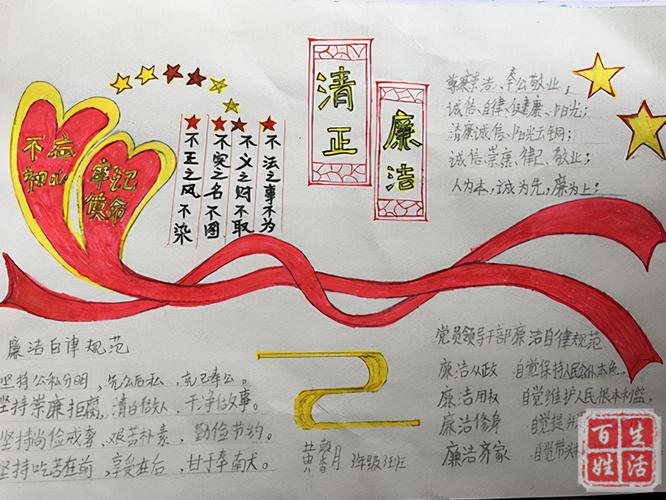 不忘
初心
牢记
使命
不法之事不为
不义之财不取
不实之名不图
不正之风不染
清正
廉洁
尊廉崇洁、奉公敬业；
诚信、自律、促健康、阳光；
清廉诚信、阳光
诚信崇廉、律己、敬业；
人为本，诚为先，廉为上；
廉洁自律规范
坚持公私分明，先公后私，克己奉公。
坚持崇廉拒腐，清白做人，干净做事。
坚持尚俭戒奢，艰苦朴素，勤俭节约。
坚持吃苦在前，享受在后，甘于奉献。
党员领导干部廉洁自律规范
廉洁从政 自觉保持人民公仆本色。
廉洁用权 自觉维护人民根本利益。
廉洁修身 自觉提升
廉洁齐家 自觉带头
黄 月
百姓生活